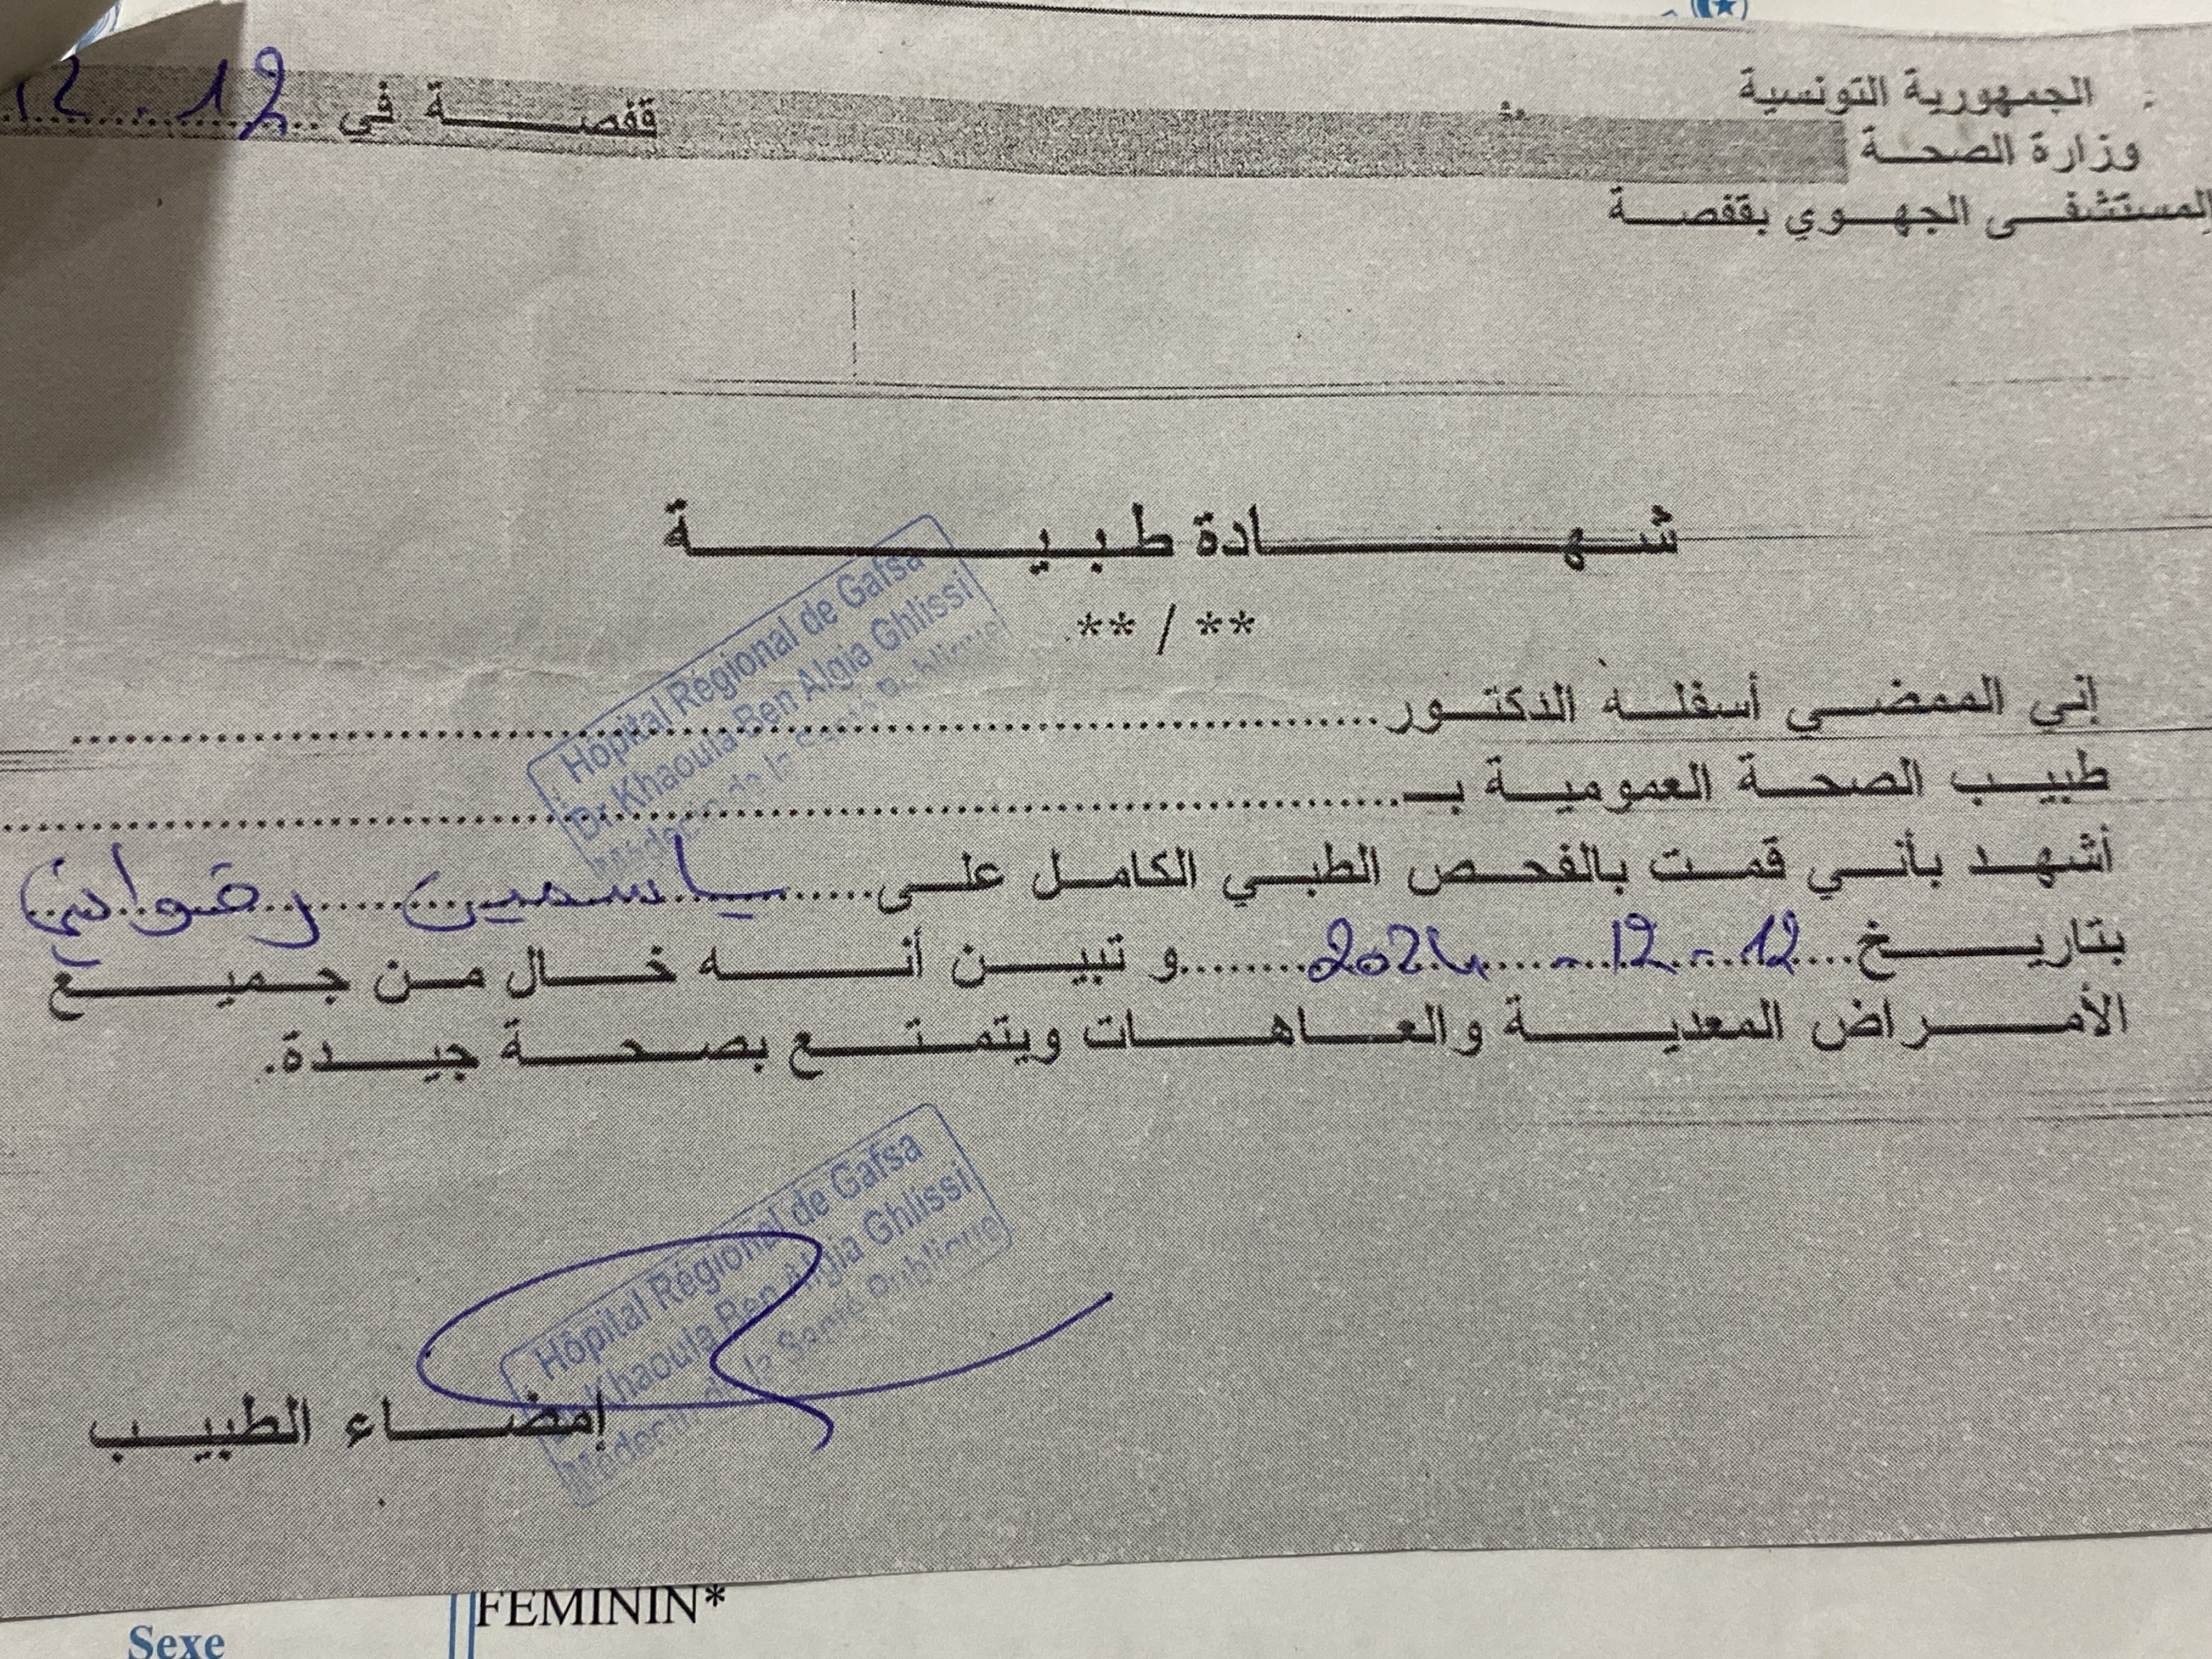 الجمهورية التونسية
وزارة الصحة
المستشفى الجهوي بقفصة
قفصة في 12.12
شهادة طبية
** / **
إني الممضي أسفله الدكتور
طبيب الصحة العمومية بـ
Hôpital Régional de Gafsa
Dr Khaoula Ben Algia Ghlissi
Médecin de la Santé Publique
أشهد بأني قمت بالفحص الطبي الكامل على ياسمين
بتاريخ 12 - 12 - 2024 و تبين أنه خال من جميع
الأمراض المعدية والعاهات ويتمتع بصحة جيدة.
Hôpital Régional de Gafsa
Khaoula Ben Algia Ghlissi
Médecin de la Santé Publique
إمضاء الطبيب
FEMININ*
Sexe